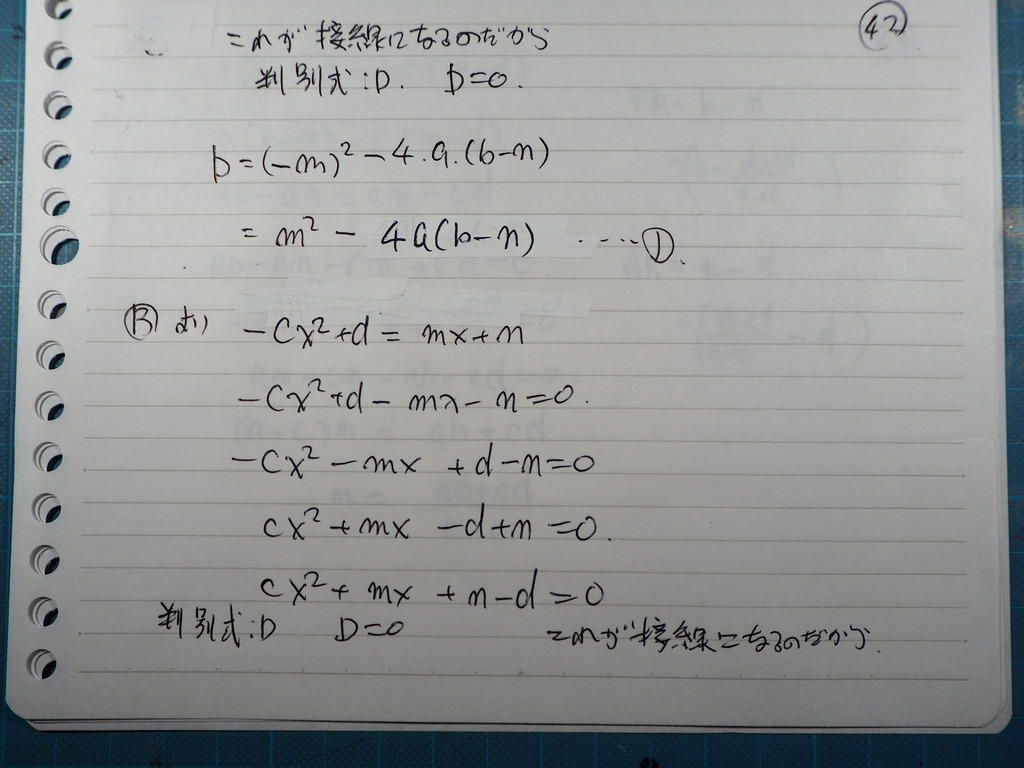 これが接線になるのだから
㊷
判別式:D. D=0.
D=(-m)²-4.a.(b-n)
= m² - 4a(b-n) ・・・・・①.
Ⓑより -cx²+d = mx+n
-cx²+d-mx-n=0.
-cx²-mx +d-n=0
cx²+mx -d+n=0.
cx²+mx +n-d=0
判別式:D D=0 これが接線になるのだから.